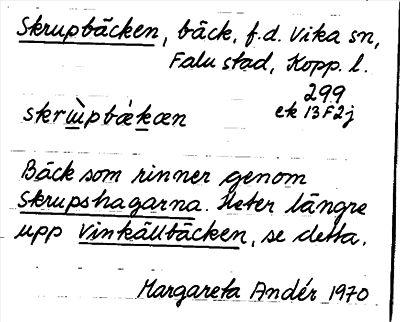 Skrupbäcken, bäck, f.d. Vika sn,
Falu stad, Kopp. l.
299
skrɯ̀pbækæn ek 13F2j
Bäck som rinner genom
Skrupshagarna. Heter längre
upp Vinkällbäcken, se detta.
Margareta Andér 1970